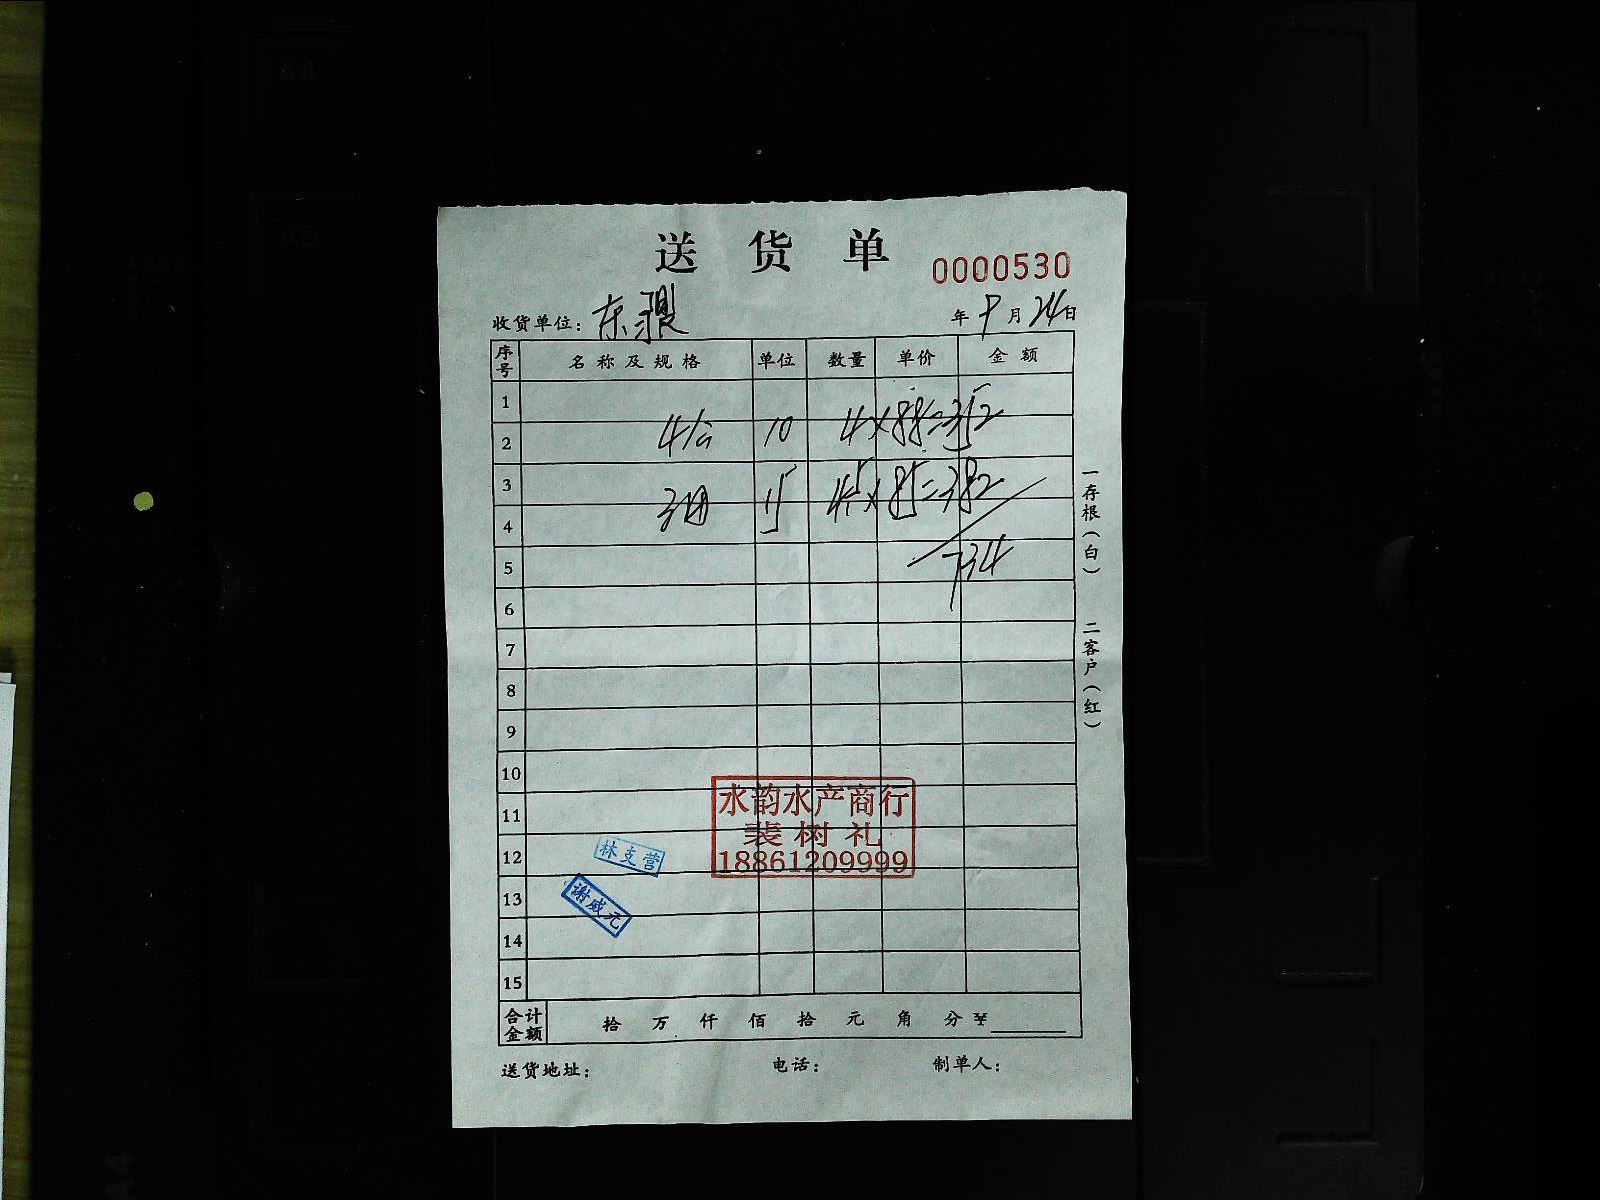 送货单
0000530
收货单位：东 年 9 月 24 日
序号 名称及规格 单位 数量 单价 金额
1
2 4公 10 4×88=352
3
4 3母 15 4.5×85=382
5 734
6
7
8
9
10
11
12
13
14
15
水韵水产商行
裴树礼
18861209999
林支营
谢威元
合计金额 拾 万 仟 佰 拾 元 角 分 ¥
送货地址： 电话： 制单人：
一存根（白） 二客户（红）
A4
A5
A4